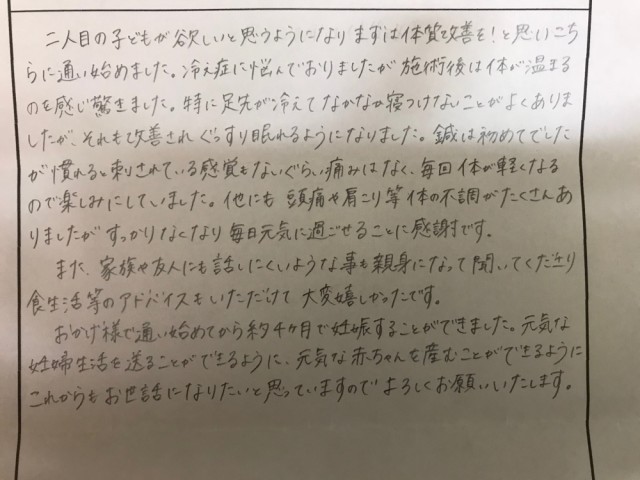 二人目の子どもが欲しいと思うようになり まずは体質改善を！と思いこち
らに通い始めました。冷え症に悩んでおりましたが 施術後は体が温まる
のを感じ驚きました。特に足先が冷えて なかなか寝つけないことがよくありま
したが、それも改善され ぐっすり眠れるようになりました。鍼は初めてでした
が慣れると刺されている感覚もないぐらい痛みはなく、毎回体が軽くなる
ので楽しみにしていました。他にも 頭痛や肩こり等 体の不調がたくさんあ
りましたが すっかりなくなり 毎日元気に過ごせることに感謝です。
また、家族や友人にも話しにくいような事も親身になって聞いてくださり
食生活等のアドバイスもいただけて 大変嬉しかったです。
おかげ様で通い始めてから約4ヶ月で妊娠することができました。元気な
妊婦生活を送ることができるように、元気な赤ちゃんを産むことができるように
これからもお世話になりたいと思っていますので よろしくお願いいたします。